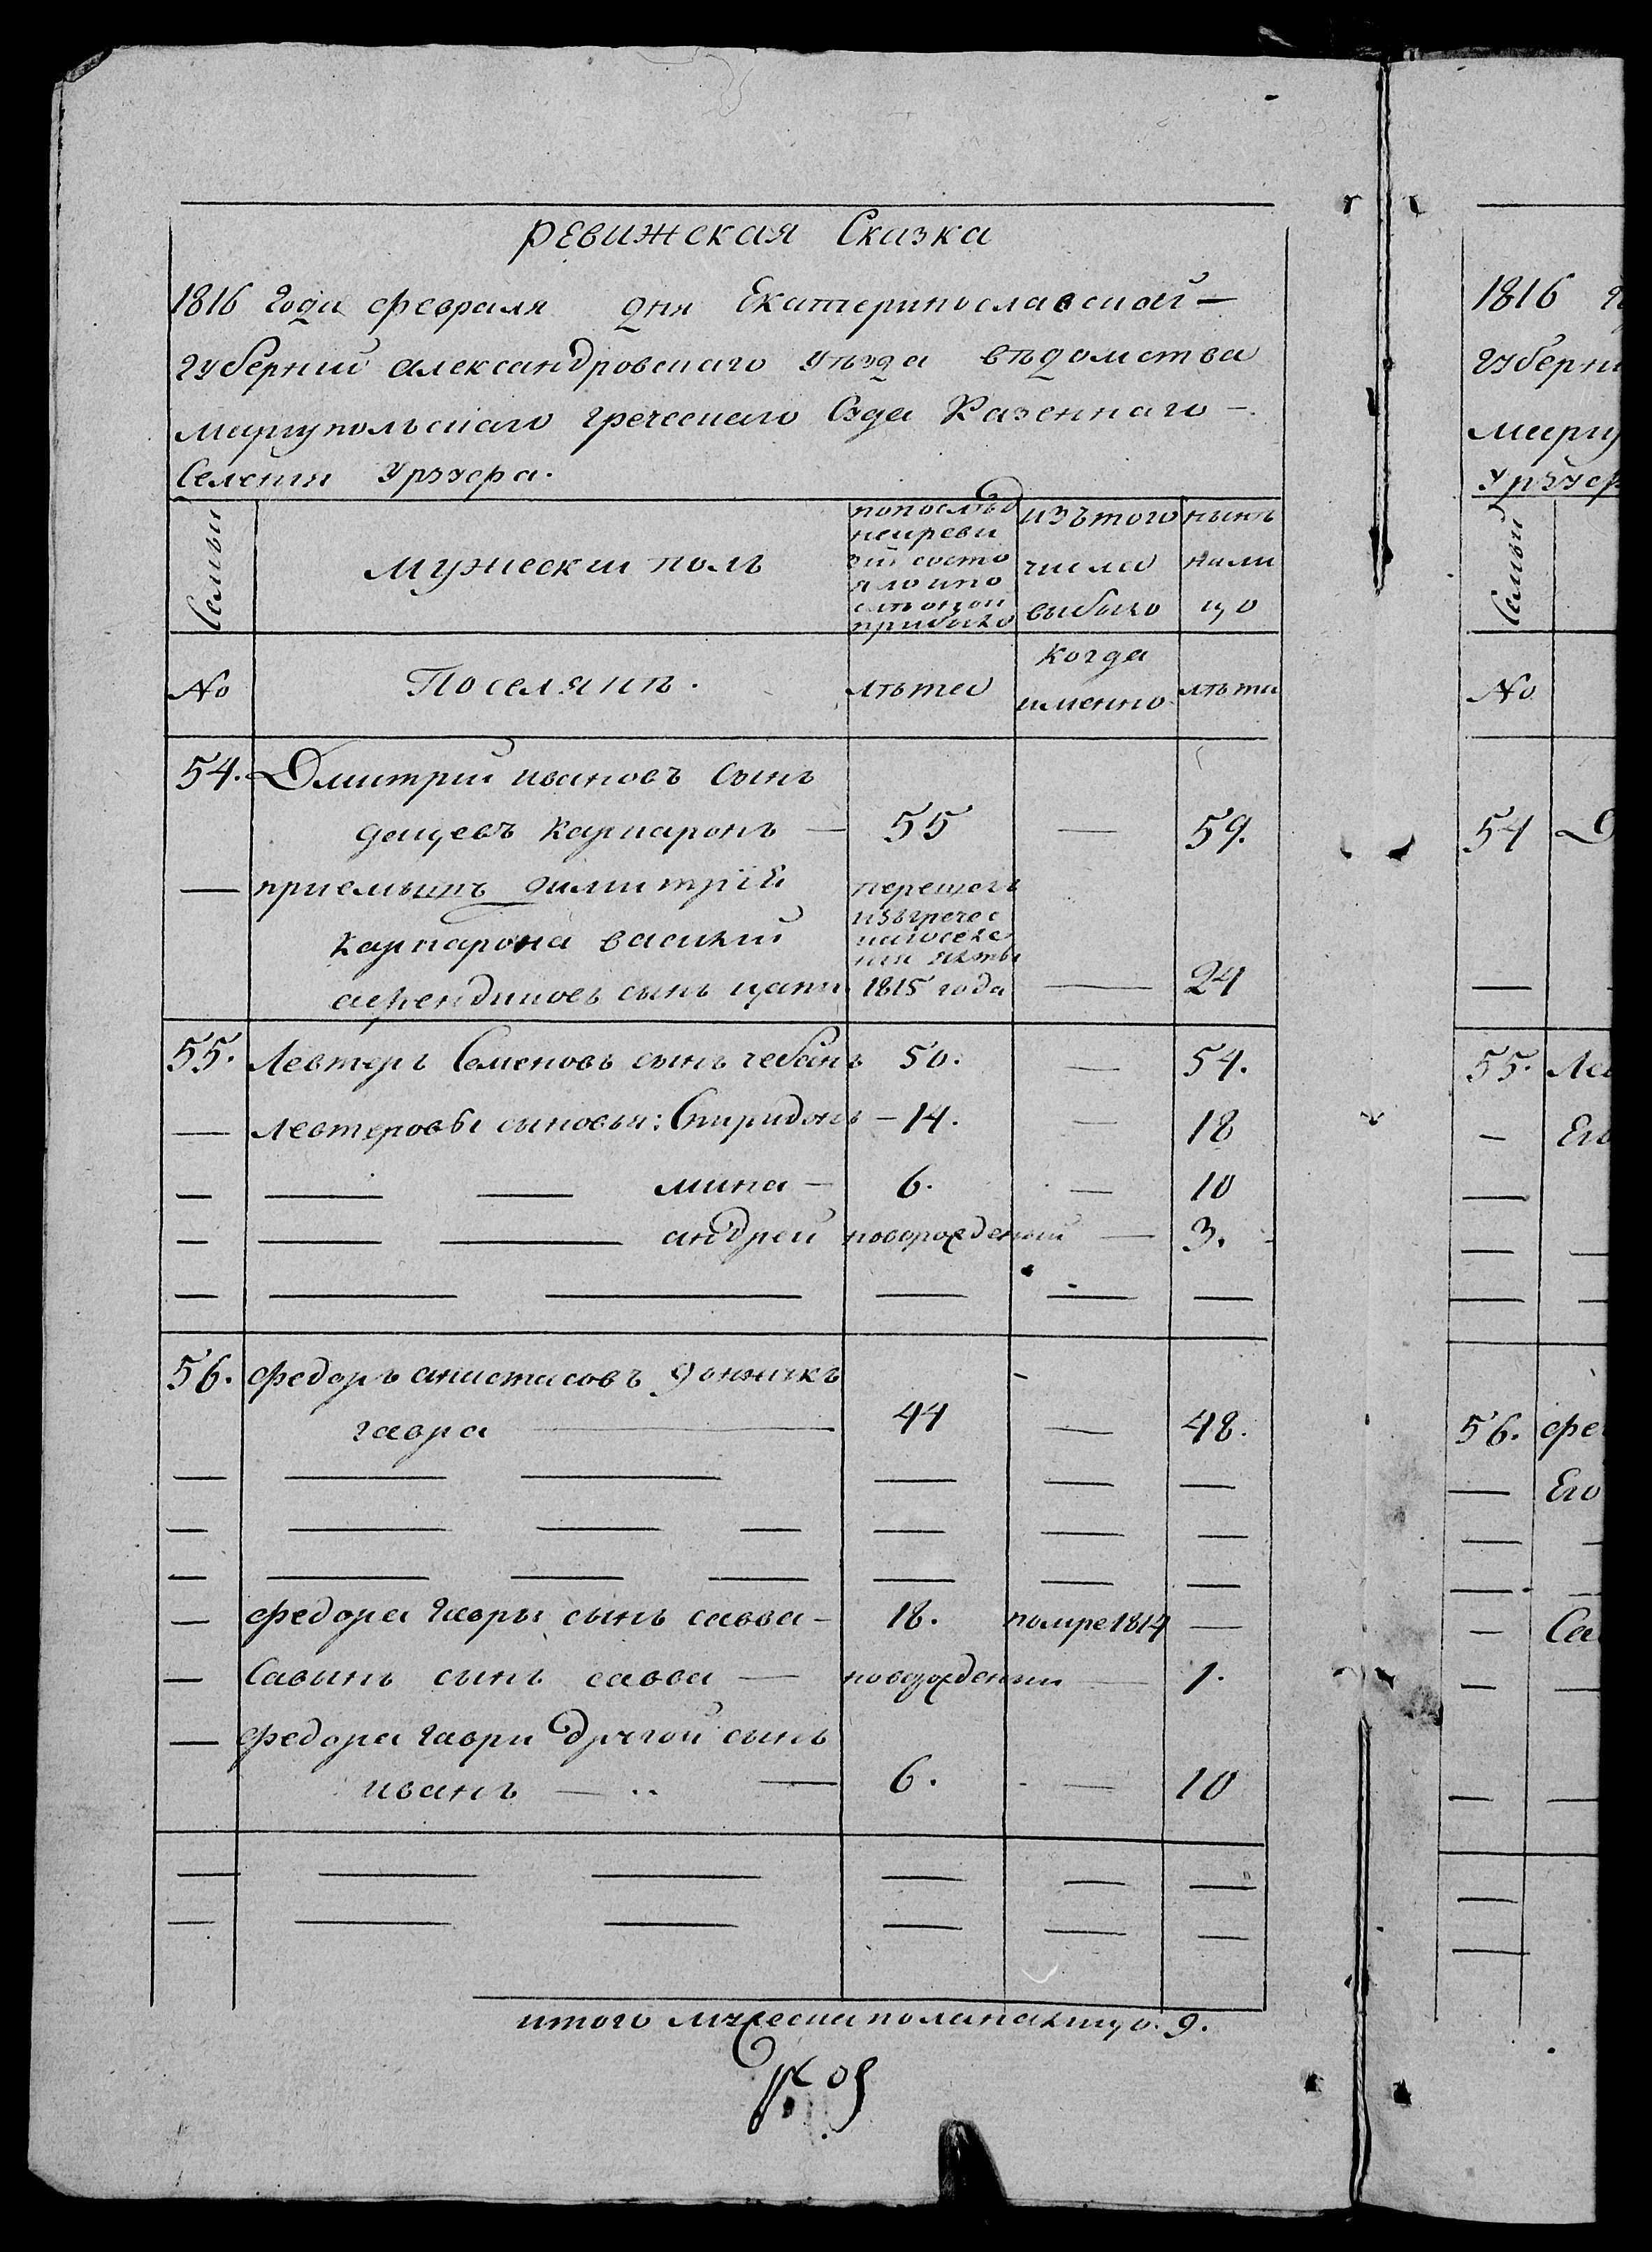 ревижская Сказка
1816 Года февраля дня Екатеринославской —
Губернии александровскаго Уѣзда вѣдомства
мариупольскаго греческаго Суда Казеннаго —
Селения Урзуфа.
Семьи
мужески полъ
попослѣд
неиреви
зии состо
яло ипо
слѣ оной
прибыло
изътого
числа
выбыло
нынѣ
нали
цо
No
Поселянъ.
лѣта
когда
именно
лѣта
54. Дмитрий ивановъ сынъ
55 — 59.
— приемышъ димитрїя
перешелъ
изъгречес
василий
1815 года — 24
сынъ
55. Левтеръ Семеновъ сынъ чебанъ 50. — 54.
— левтеровы сыновья: Спиридонъ — 14. — 18
— — — мина — 6. — 10
— — — андрей новорожденый — 3.
— — — — — —
56. федоръ анастасовъ
гавра — 44 — 48.
— — — — — —
— — — — — — —
— — — — — — —
— федора гавры сынъ савва — 18. помре 1814 —
— Савынъ сынъ савва — новорожденыи — 1.
— федора гаври другой сынъ
иванъ — — 6. — 10
— — — — — —
— — — — — —
итого мужеска пола налицо. 9.
1816
Губерни
мариу
Урзуф
Семьи
No
54 Д
—
55. Лев
— Его
—
— —
— —
56. фе
— Его
— —
— —
— Са
— —
— —
—
—